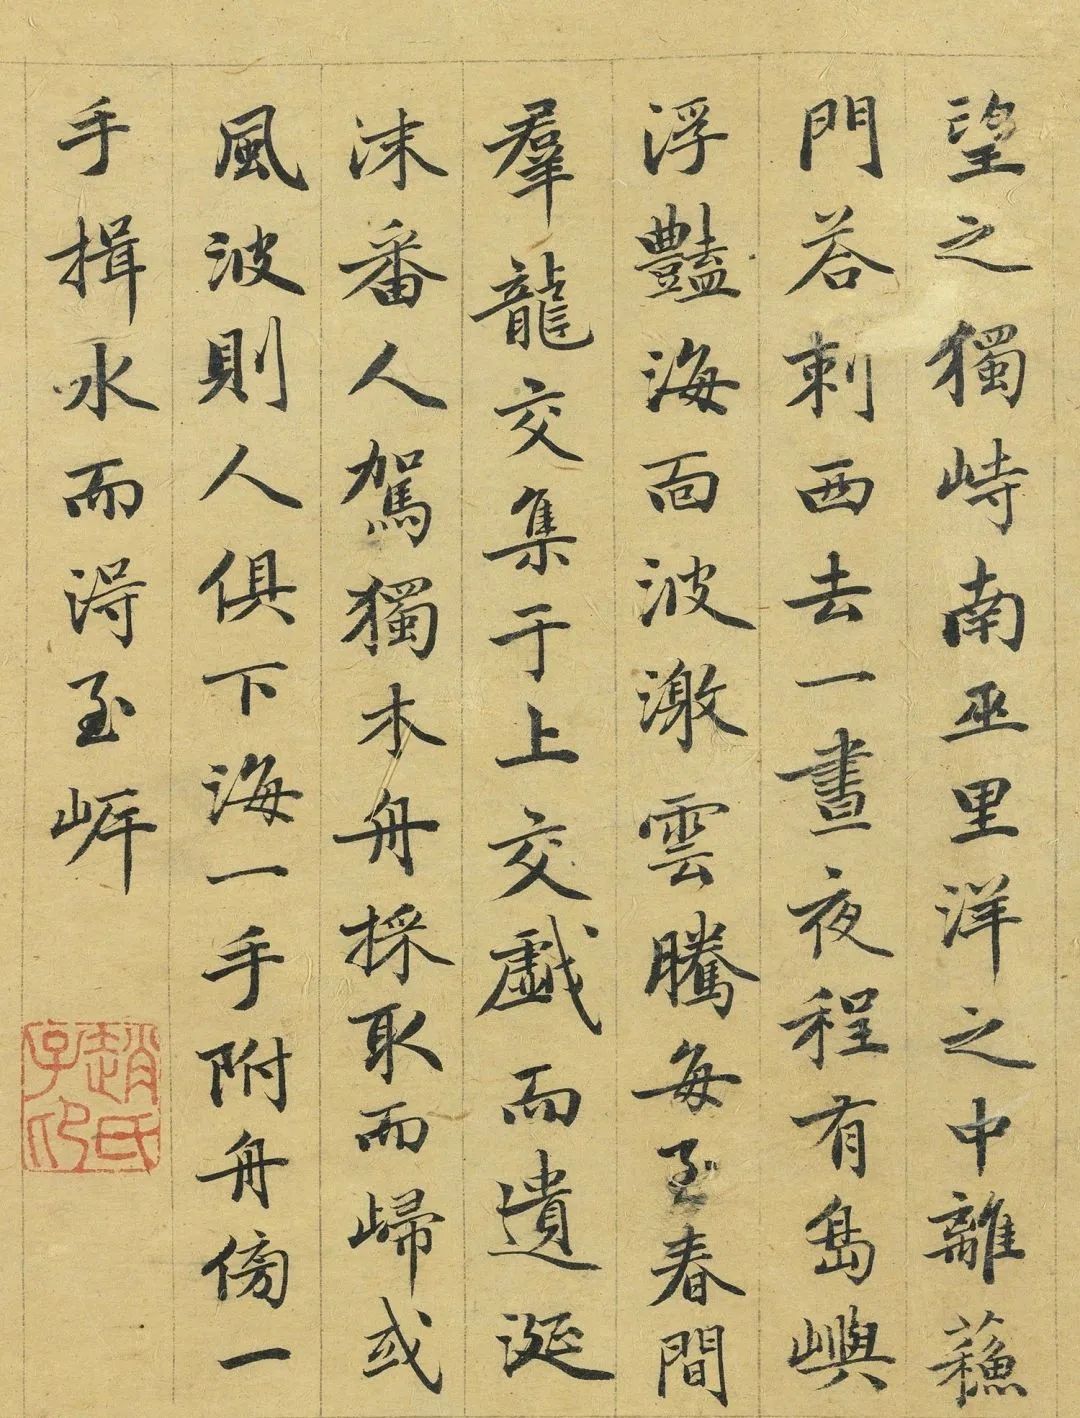 望之獨峙南巫里洋之中離蘓
門荅剌西去一晝夜程有島嶼
浮豔海面波激雲騰每至春間
羣龍交集于上交戲而遺涎
沫番人駕獨木舟採取而歸或
風波則人俱下海一手附舟傍一
手揖水而得至岸
趙氏子印